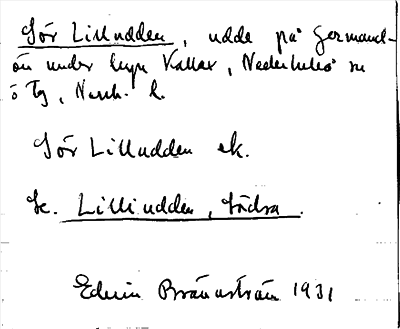 Sör Lilludden, udde på Germand-
ön under byn Kallax, Nederluleå sn
ö Tg, Norrb. l.
Sör Lilludden ek.
Se. Lilludden, södra.
Edvin Brännström 1931